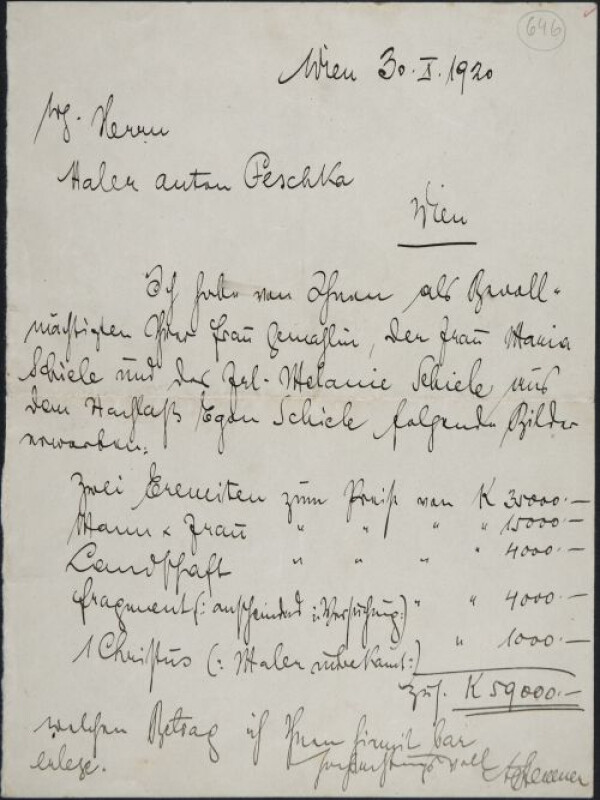 646
Wien 30.X.1920
Herrn
Maler Anton Peschka
Wien
Ich habe von Ihnen als Bevoll-
mächtigten Ihrer Frau Gemahlin, der Frau Maria
Schiele und des Frl. Melanie Schiele aus
dem Nachlaß Egon Schiele folgende Bilder
erworben:
Zwei Eremiten zum Preise von K 35000.—
Mann & Frau " " " " 15000.—
Landschaft " " " " 4000.—
Fragment (: anscheinend Versuchung:) " " 4000.—
1 Christus (: Maler unbekannt:) " 1000.—
zus. K 59000.—
welchen Betrag ich Ihnen hiermit bar
erlege. hochachtungsvoll